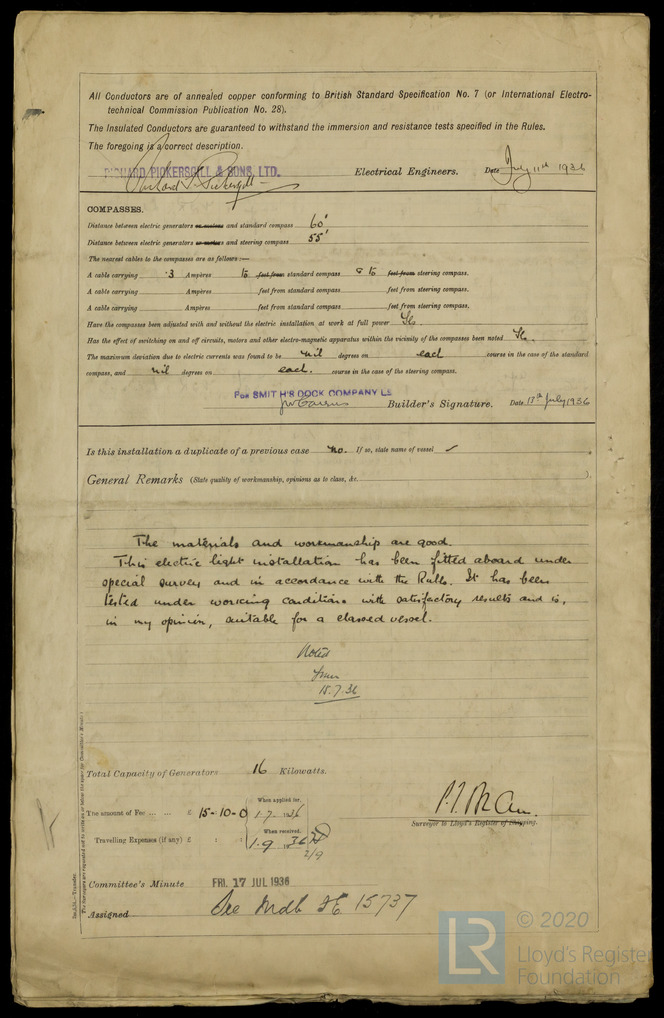 All Conductors are of annealed copper conforming to British Standard Specification No. 7 (or International Electro-
technical Commission Publication No. 28).
The Insulated Conductors are guaranteed to withstand the immersion and resistance tests specified in the Rules.
The foregoing is a correct description.
RICHARD PICKERSGILL & SONS, LTD. Electrical Engineers. Date July 11th 1936
Richard Pickersgill
COMPASSES.
Distance between electric generators or motors and standard compass 60'
Distance between electric generators or motors and steering compass 55'
The nearest cables to the compasses are as follows:—
A cable carrying .3 Ampères to feet from standard compass to feet from steering compass.
A cable carrying Ampères feet from standard compass feet from steering compass.
A cable carrying Ampères feet from standard compass feet from steering compass.
Have the compasses been adjusted with and without the electric installation at work at full power Yes
Has the effect of switching on and off circuits, motors and other electro-magnetic apparatus within the vicinity of the compasses been noted Yes.
The maximum deviation due to electric currents was found to be nil degrees on each course in the case of the standard
compass, and nil degrees on each. course in the case of the steering compass.
FOR SMITH'S DOCK COMPANY LD
Builder's Signature. Date 11th July 1936
Is this installation a duplicate of a previous case no. If so, state name of vessel ✓
General Remarks (State quality of workmanship, opinions as to class, &c. ).
The materials and workmanship are good.
This electric light installation has been fitted aboard under
special survey and in accordance with the Rules. It has been
tested under working conditions with satisfactory results and is,
in my opinion, suitable for a classed vessel.
Noted
15.7.36
Total Capacity of Generators 16 Kilowatts.
The amount of Fee ... ... £ 15-10-0 When applied for, 1.7.1936
Travelling Expenses (if any) £ : : When received, 1.9.1936
2/9
Surveyor to Lloyd's Register of Shipping.
Committee's Minute FRI. 17 JUL 1936
Assigned See Mdb 15737
LR © 2020
Lloyd's Register
Foundation